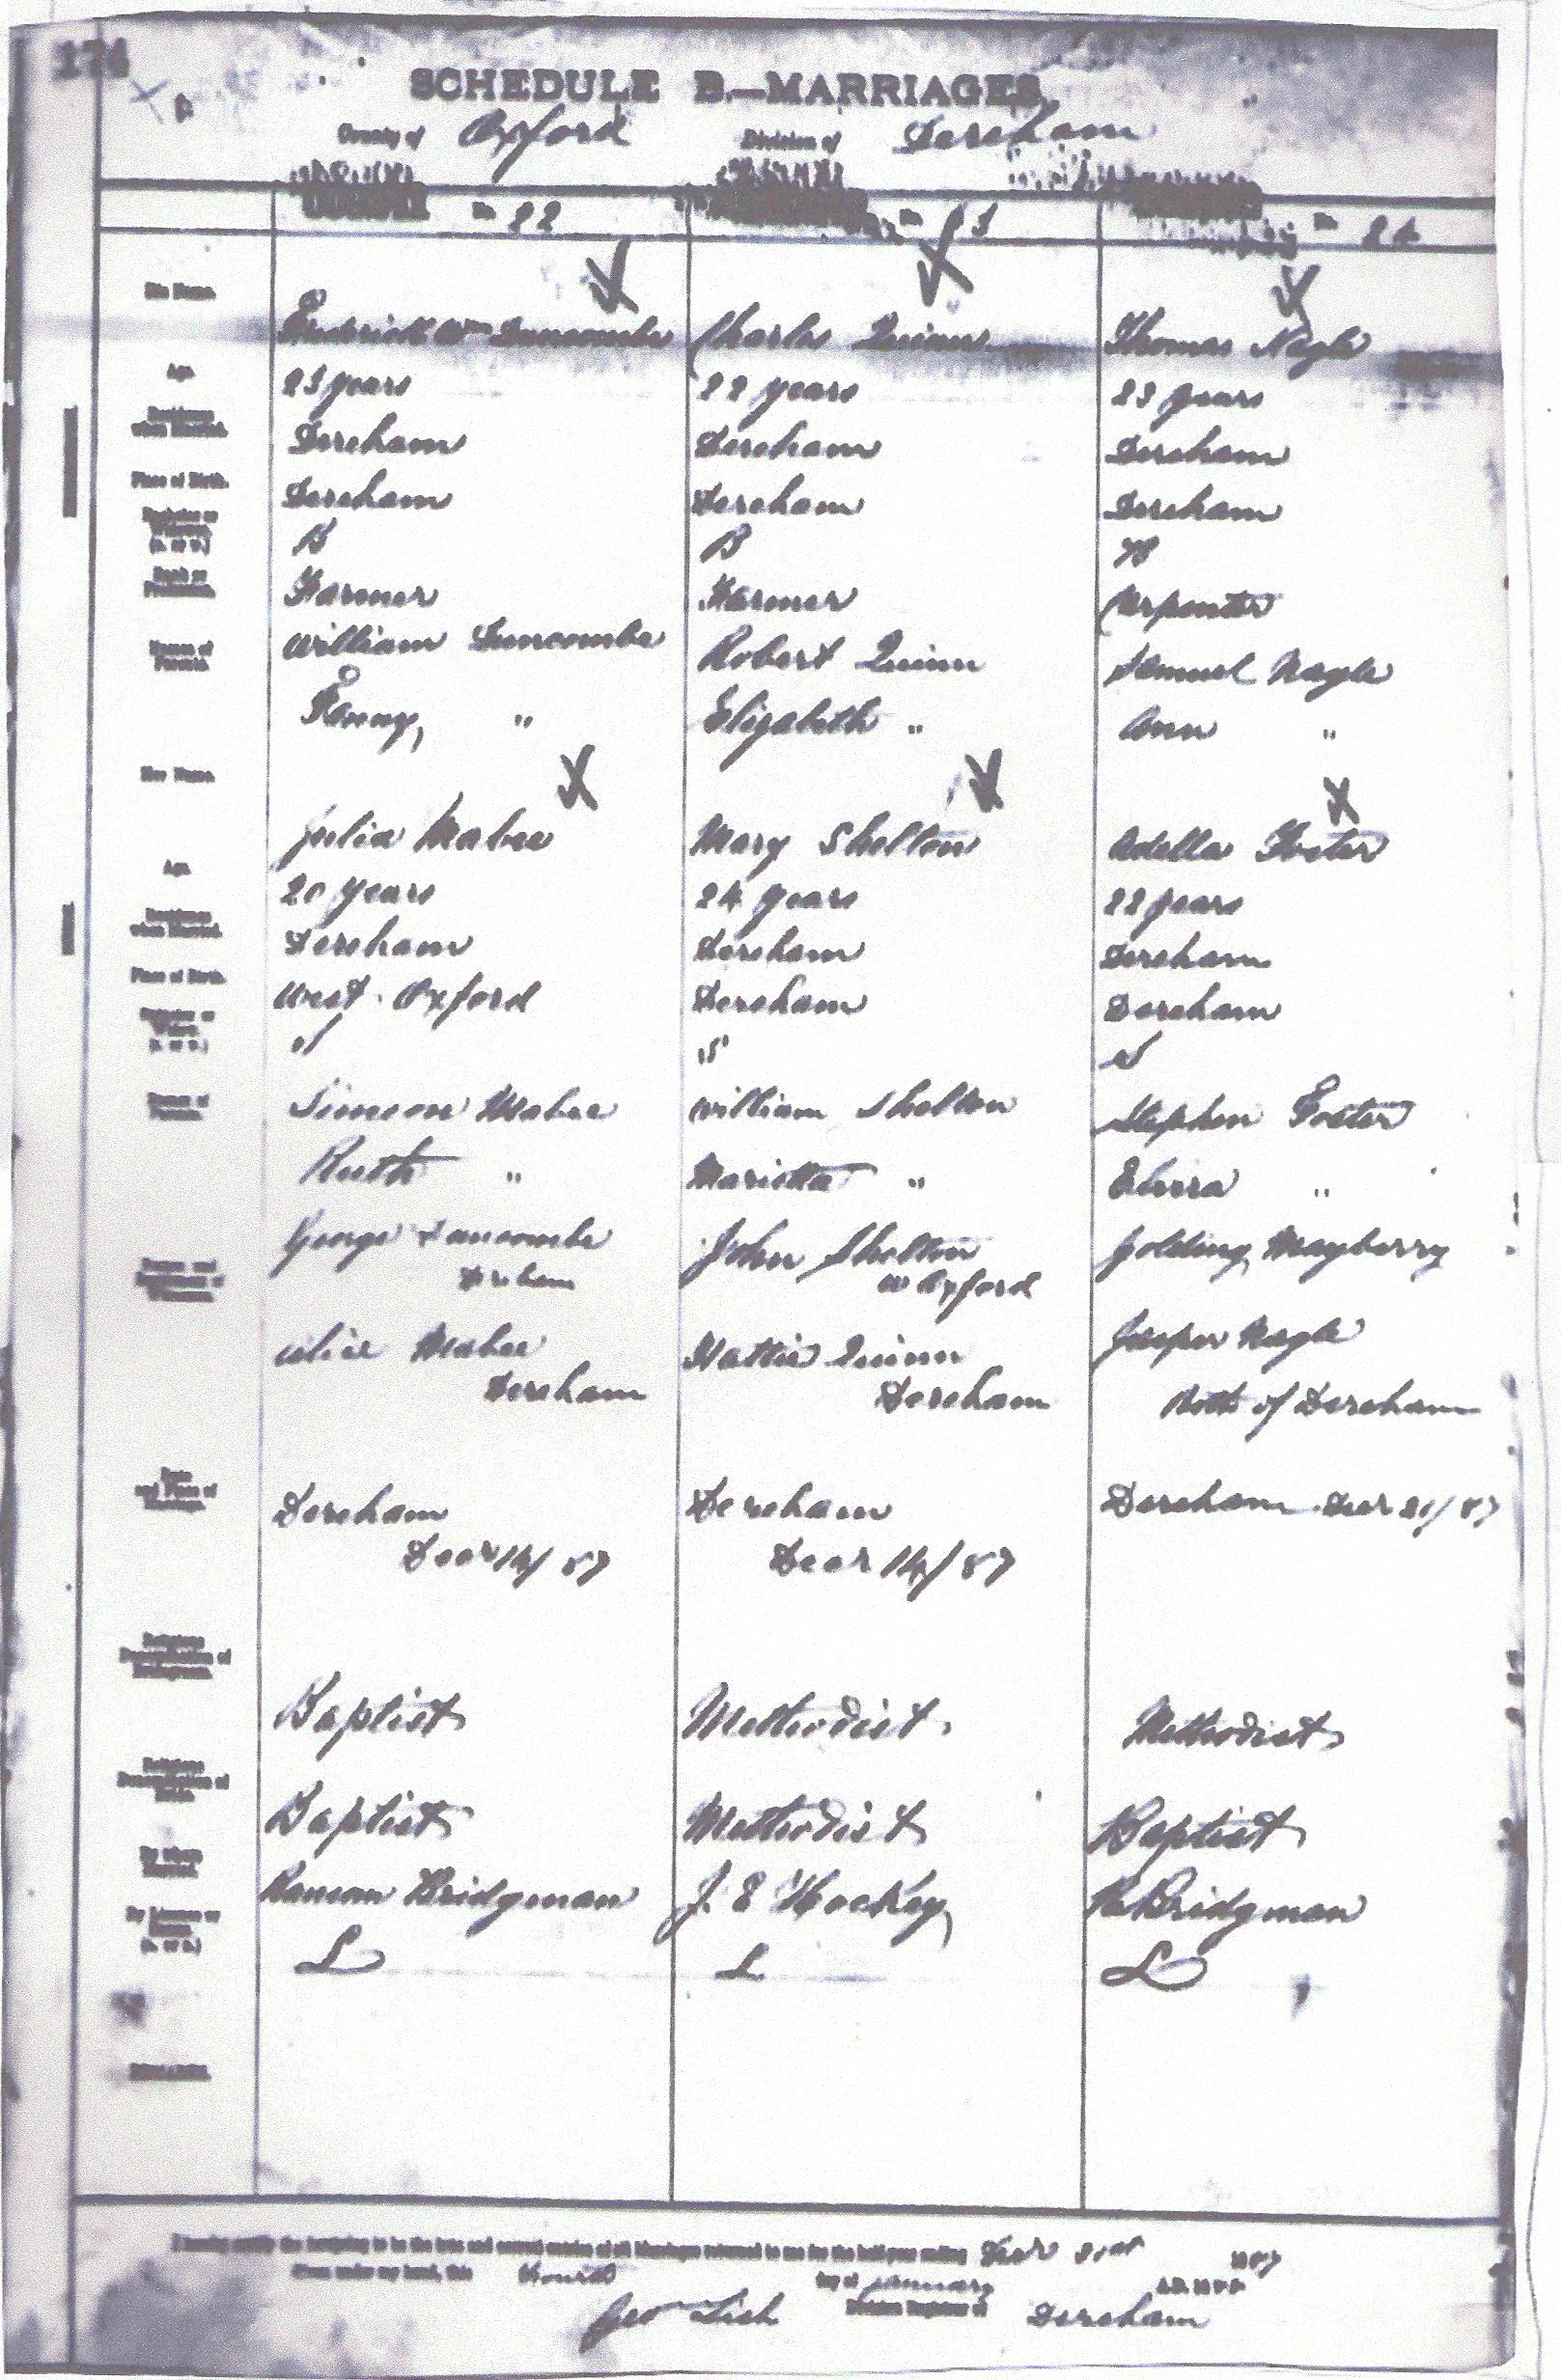 174
SCHEDULE B.—MARRIAGES
County of Oxford Division of Dereham
No 22 No 24
His Name.
Frederick Wm Duncombe Charles Quinn Thomas Nagle
Age.
23 years 22 years 23 years
Residence when Married.
Dereham Dereham Dereham
Place of Birth.
Dereham Dereham Dereham
B B B
Farmer Farmer Carpenter
Names of Parents.
William Duncombe Robert Quinn Samuel Nagle
Fanny " Elizabeth " Ann "
Her Name.
Julia Mabee Mary Shelton Adella Foster
Age.
20 years 24 years 22 years
Residence when Married.
Dereham Dereham Dereham
Place of Birth.
West Oxford Dereham Dereham
S S S
Names of Parents.
Simeon Mabee William Shelton Stephen Foster
Ruth " Marietta " Elvira "
George Duncombe John Shelton Golding Mayberry
Dereham W Oxford
Alice Mabee Hattie Quinn Jasper Nagle
Dereham Dereham Both of Dereham
Dereham Dereham Dereham Decr 21/87
Decr 14/87 Decr 14/87
Religious Denomination of Bridegroom.
Baptist Methodist Methodist
Religious Denomination of Bride.
Baptist Methodist Baptist
By whom Married.
Ranson Bridgman J. E Hockey R Bridgman
L L L
I hereby certify the foregoing to be the true and correct entries of all Marriages returned to me for the half-year ending Decr 31st 1887
Given under my hand, this day of January
Geo Division Registrar of Dereham